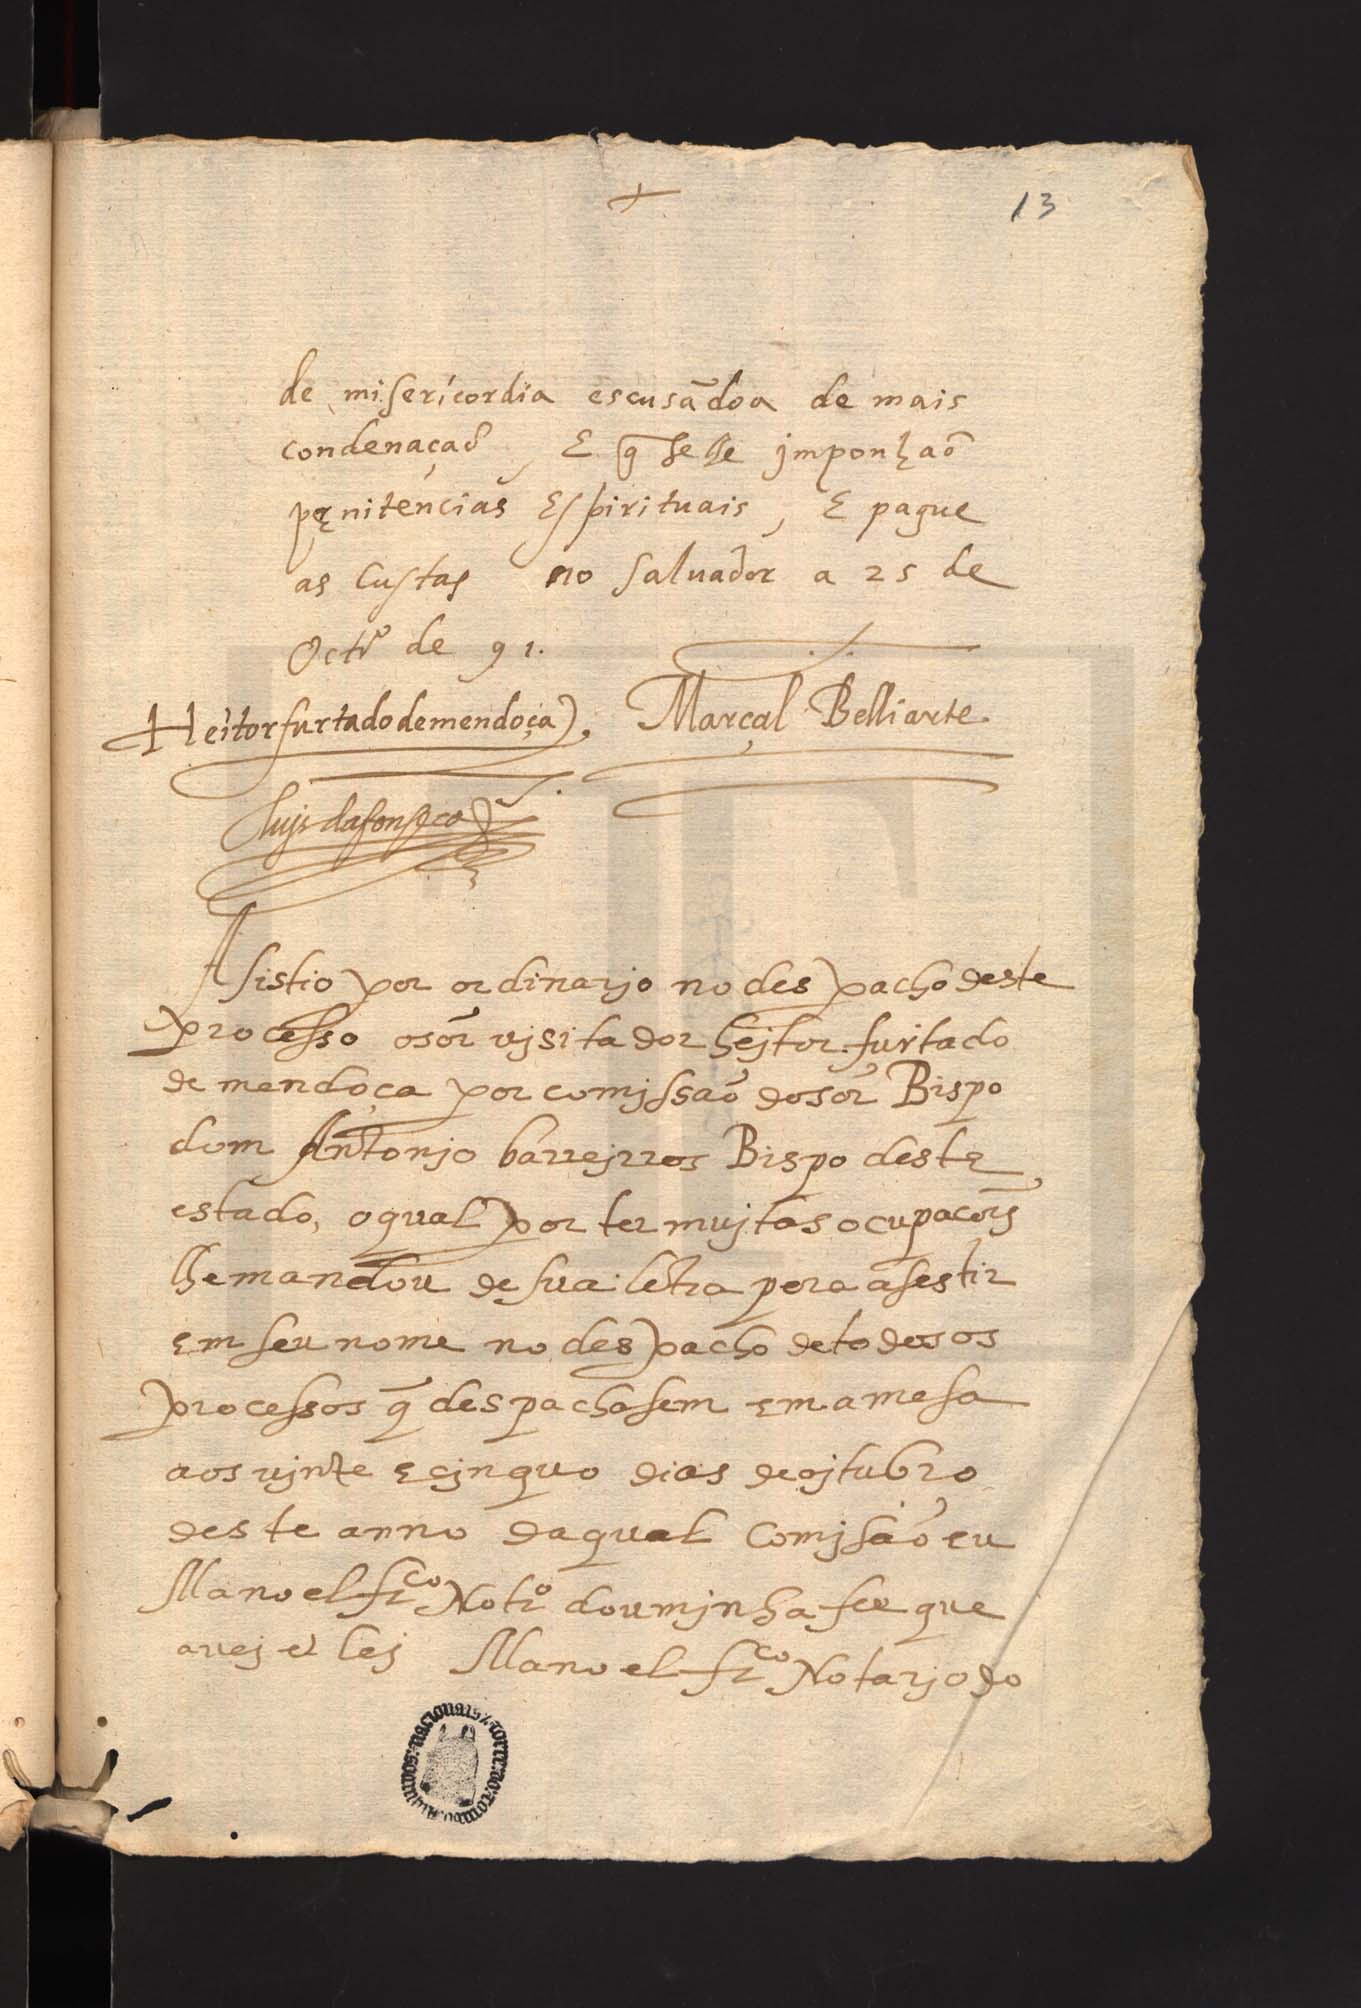 13
de misericordia escusãdoa de mais
condenação, E q̃ se lhe imponhaõ
penitencias Espirituais, E pague
as Custas no salvador a 25 de
Octro de 91.
Heitor furtado de mendoça. Marçal Belliarte.
luis da fonseca
Asistio por ordinarjo no despacho deste
processo o sõr vjsitador hejtor furtado
de mendoça por comjssaõ do sõr Bispo
dom Antonjo barrejrros Bispo deste
estado, o qual por ter mujtas ocupacoẽs
lhe mandou de sua letra pera asestir
em seu nome no despacho de todos os
processos q̃ despachasem em a mesa
aos vjnte e cjnquo dias de ojtubro
deste anno da qual Comjsaõ eu
Manoel frco Notro dou mjnha fee que
a vej e lej Manoel frco Notarjo do